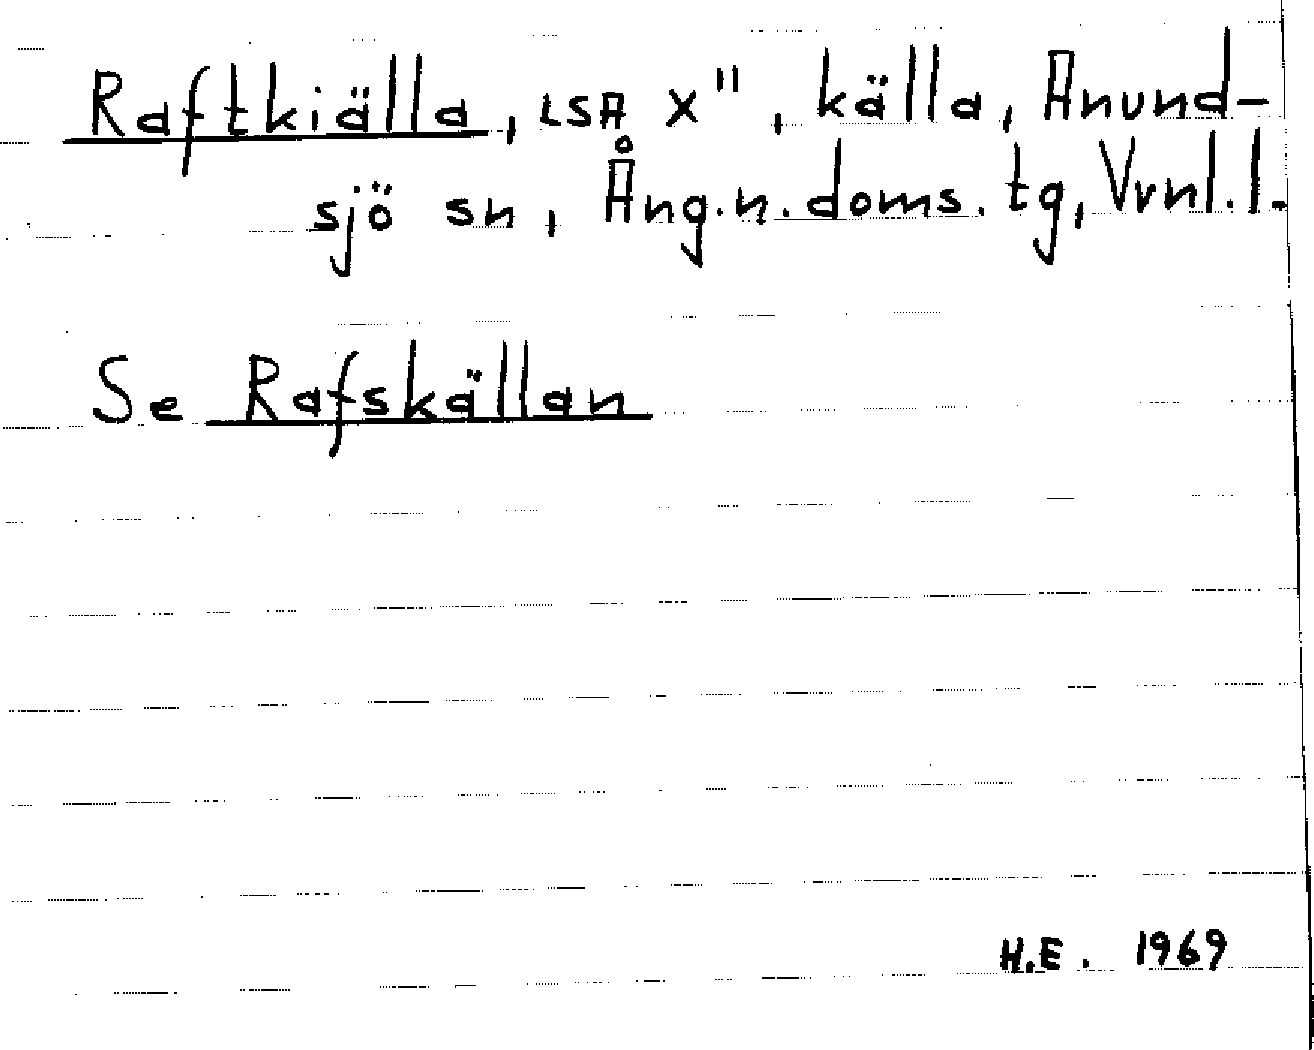 Raftkiälla, LSA X", källa, Anund-
sjö sn, Ång.n.doms.tg, Vvnl.l.
Se Rafskällan
H.E. 1969